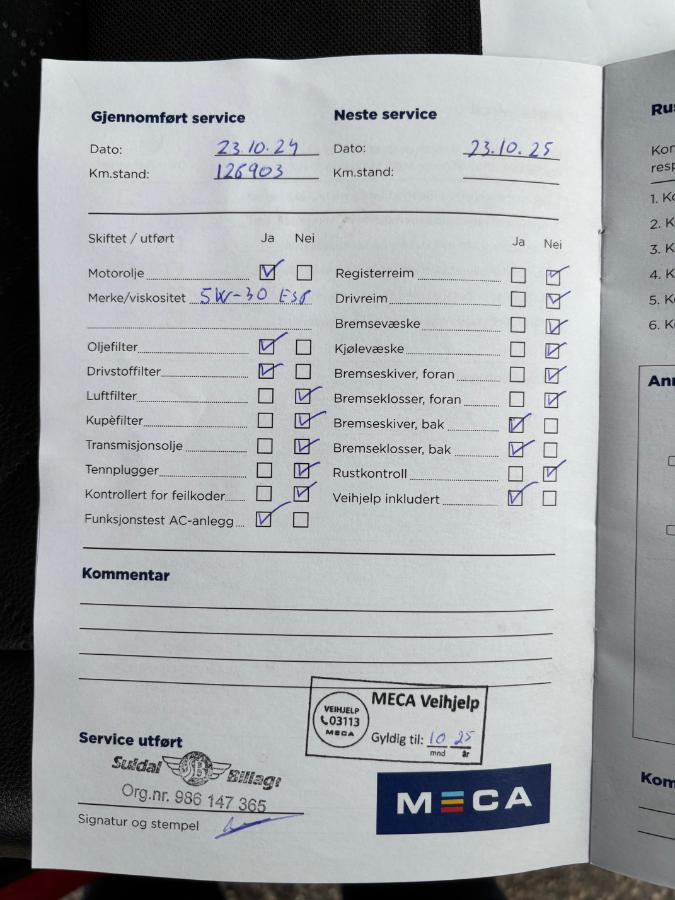 Gjennomført service
Dato: 23.10.24
Km.stand: 126903
Neste service
Dato: 23.10.25
Km.stand:
Skiftet / utført Ja Nei
Motorolje
Merke/viskositet 5W-30 ESP
Oljefilter
Drivstoffilter
Luftfilter
Kupèfilter
Transmisjonsolje
Tennplugger
Kontrollert for feilkoder
Funksjonstest AC-anlegg
Ja Nei
Registerreim
Drivreim
Bremsevæske
Kjølevæske
Bremseskiver, foran
Bremseklosser, foran
Bremseskiver, bak
Bremseklosser, bak
Rustkontroll
Veihjelp inkludert
Kommentar
VEIHJELP
03113
MECA
MECA Veihjelp
Gyldig til: 10 25
mnd år
Service utført
Suldal SB Billag
Org.nr. 986 147 365
Signatur og stempel
MECA
Ru
Kor
resp
1. K
2. K
3. K
4. K
5. K
6. K
An
Kom